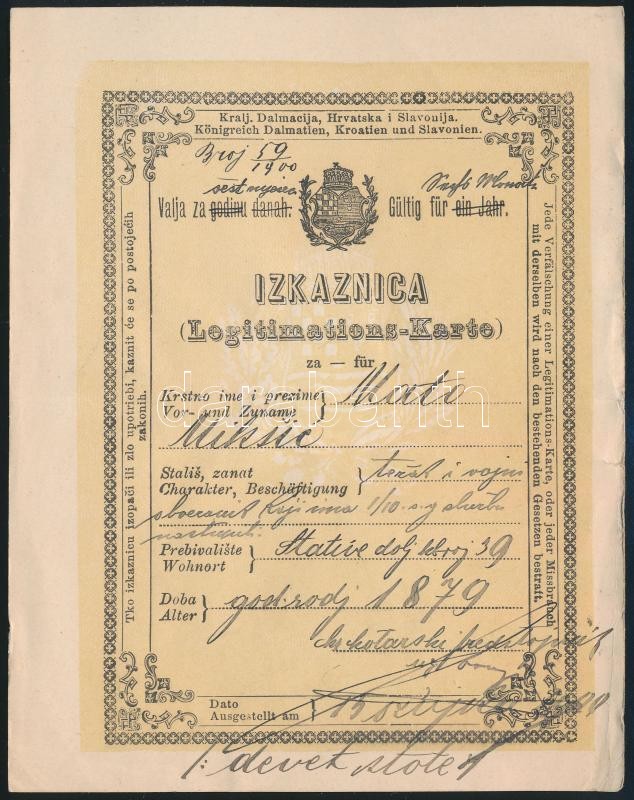 Kralj. Dalmacija, Hrvatska i Slavonija.
Königreich Dalmatien, Kroatien und Slavonien.
Broj 59/1900
šest
Valja za godinu danah.
Gültig für ein Jahr.
IZKAZNICA
(Legitimations-Karte)
za — für
Krstno ime i prezime
Vor- und Zuname
Mato
Mikšić
Stališ, zanat
Charakter, Beschäftigung
težak i vojni
obvezanik koji ima 1/10 o. g. službu
nastupiti.
Prebivalište
Wohnort
Stative dolj kbroj 39
Doba
Alter
god rodj 1879
kr kotarski predstojnik
Dato
Ausgestellt am
devet stote
Tko izkaznicu izopači ili zlo upotriebi, kaznit će se po postojećih
zakonih.
Jede Verfälschung einer Legitimations-Karte, oder jeder Missbrauch
mit derselben wird nach den bestehenden Gesetzen bestraft.
darabanth